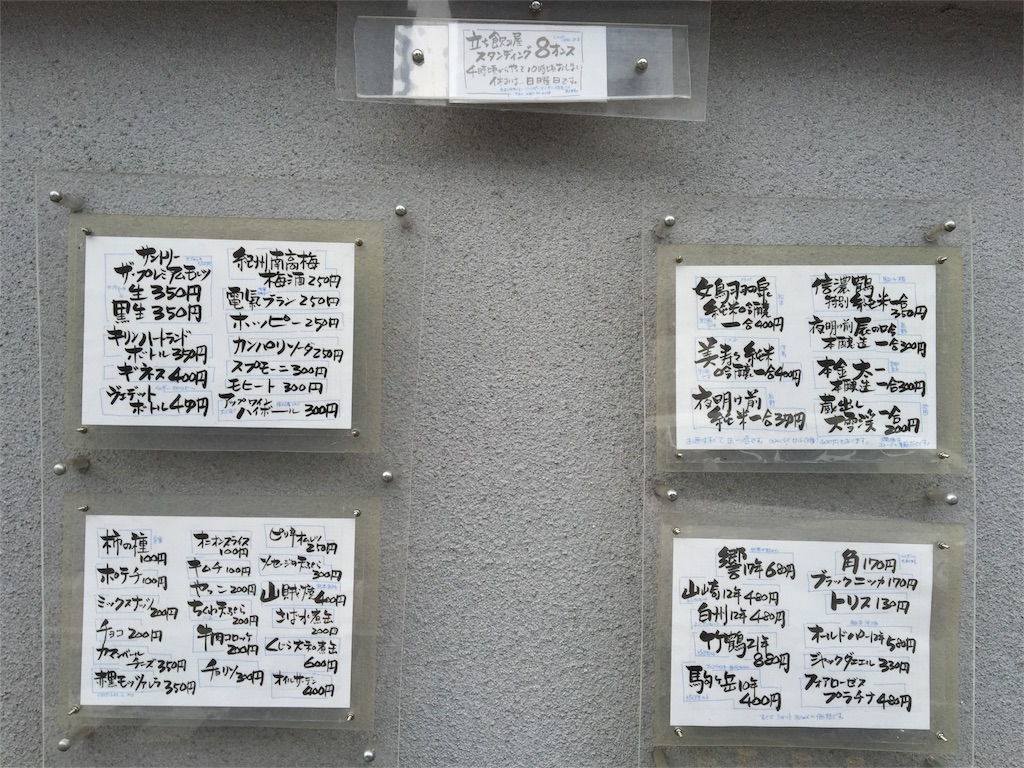 立ち飲み屋
スタンディング 8オンス
4時頃からやって10時頃おしまい
休みは 日曜日です。
サントリー
ザ・プレミアムモルツ
生 350円
黒生 350円
キリンハートランド
ボトル 350円
ギネス 400円
ヴェデット
ボトル
紀州南高梅
梅酒 250円
電気ブラン 250円
ホッピー 250円
カンパリソーダ 250円
スプモーニ 300円
モヒート 300円
アップルワイン
ハイボール 300円
女鳥羽の泉
純米吟醸
一合 400円
美寿々 純米
吟醸 一合 400円
夜明け前
純米 一合
信濃鶴
特別 純米 一合
350円
夜明け前 辰の吟
本醸造 一合 300円
本金 太一
本醸造 一合 300円
蔵出し 一合
大雪渓 200円
柿の種
100円
ポテチ 100円
ミックスナッツ
200円
チョコ 200円
カマンベール
チーズ 350円
350円
オニオンスライス
100円
キムチ 100円
ヤッコ 200円
ちくわ天ぷら
200円
牛肉コロッケ
200円
チョリソ 300円
250円
ソーセージの天ぷら
300円
山賊焼 400円
さば水煮缶
200円
くじら大和煮缶
600円
オイルサーデン
400円
響 17年 680円
山崎 12年 480円
白州 12年 480円
竹鶴 21年
880円
駒ヶ岳 10年
400円
角 170円
ブラックニッカ 170円
トリス 130円
オールドパー 12年 580円
ジャックダニエル 330円
フォアローゼス
プラチナ 480円